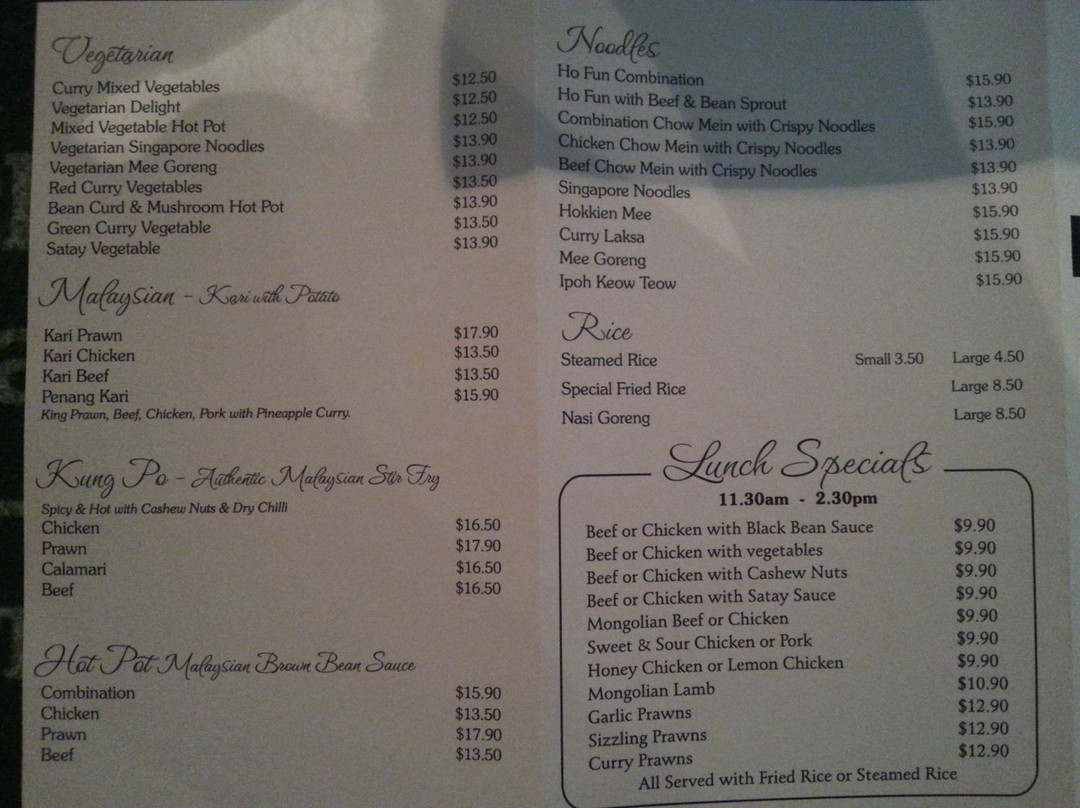 Vegetarian
Curry Mixed Vegetables $12.50
Vegetarian Delight $12.50
Mixed Vegetable Hot Pot $12.50
Vegetarian Singapore Noodles $13.90
Vegetarian Mee Goreng $13.90
Red Curry Vegetables $13.50
Bean Curd & Mushroom Hot Pot $13.90
Green Curry Vegetable $13.50
Satay Vegetable $13.90
Malaysian - Kari with Potato
Kari Prawn $17.90
Kari Chicken $13.50
Kari Beef $13.50
Penang Kari $15.90
King Prawn, Beef, Chicken, Pork with Pineapple Curry.
Kung Po - Authentic Malaysian Stir Fry
Spicy & Hot with Cashew Nuts & Dry Chilli
Chicken $16.50
Prawn $17.90
Calamari $16.50
Beef $16.50
Hot Pot Malaysian Brown Bean Sauce
Combination $15.90
Chicken $13.50
Prawn $17.90
Beef $13.50
Noodles
Ho Fun Combination $15.90
Ho Fun with Beef & Bean Sprout $13.90
Combination Chow Mein with Crispy Noodles $15.90
Chicken Chow Mein with Crispy Noodles $13.90
Beef Chow Mein with Crispy Noodles $13.90
Singapore Noodles $13.90
Hokkien Mee $15.90
Curry Laksa $15.90
Mee Goreng $15.90
Ipoh Keow Teow $15.90
Rice
Steamed Rice Small 3.50 Large 4.50
Special Fried Rice Large 8.50
Nasi Goreng Large 8.50
Lunch Specials
11.30am - 2.30pm
Beef or Chicken with Black Bean Sauce $9.90
Beef or Chicken with vegetables $9.90
Beef or Chicken with Cashew Nuts $9.90
Beef or Chicken with Satay Sauce $9.90
Mongolian Beef or Chicken $9.90
Sweet & Sour Chicken or Pork $9.90
Honey Chicken or Lemon Chicken $9.90
Mongolian Lamb $10.90
Garlic Prawns $12.90
Sizzling Prawns $12.90
Curry Prawns $12.90
All Served with Fried Rice or Steamed Rice